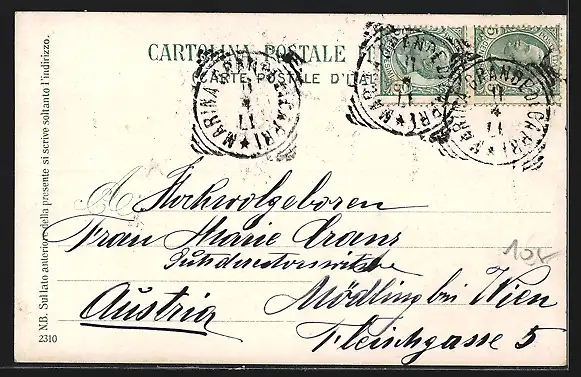 CARTOLINA POSTALE
CARTE POSTALE D'ITA
MARINA GRANDE (CAPRI)
11 4 11
MARINA GRANDE (CAPRI)
11 4 11
MARINA GRANDE (CAPRI)
11 4 11
A Hochwolgeboren
Frau Marie Cranz
Gutsdirectorswitwe
Mödling bei Wien
Austria
Fleischgasse 5
104
N.B. Sul lato anteriore della presente si scrive soltanto l'indirizzo.
2310